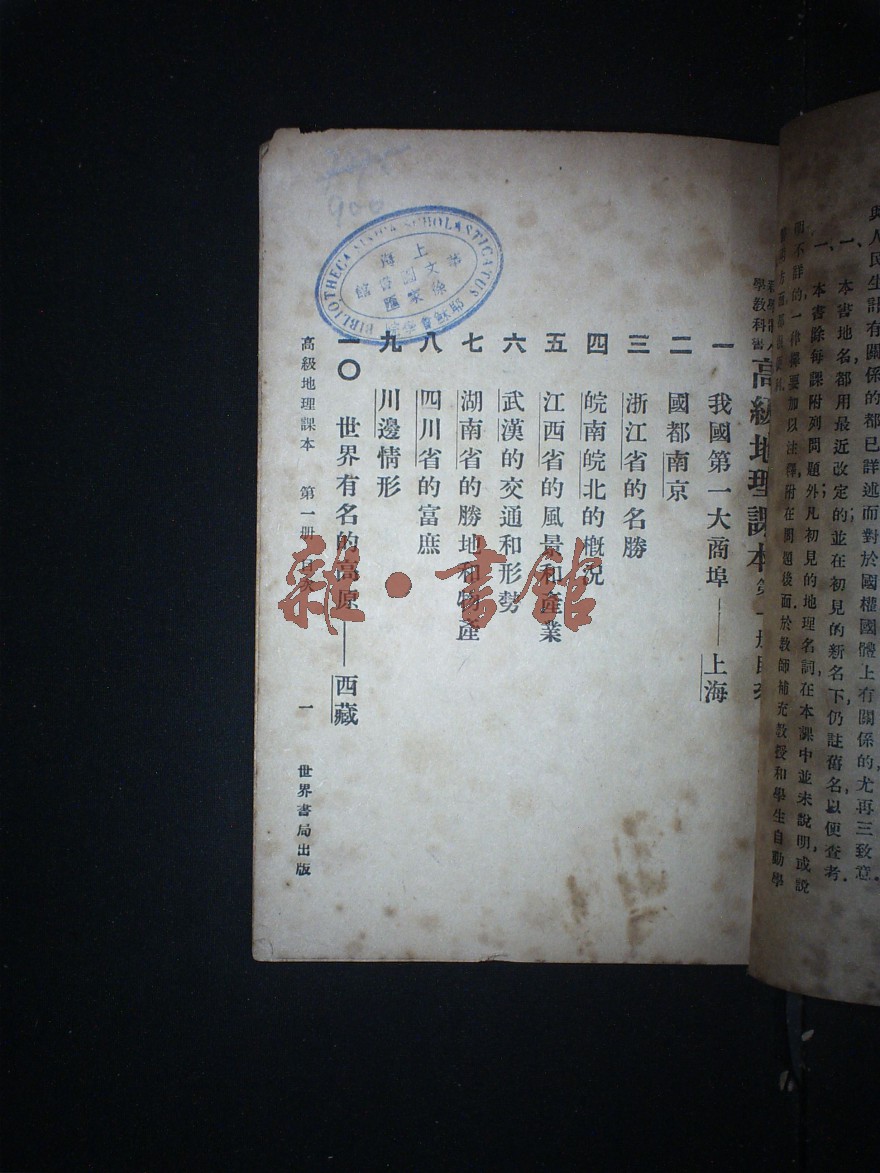 與人民生計有關係的都已詳述而對於國權國體上有關係的尤再三致意.
一、本書地名都用最近改定的並在初見的新名下仍註舊名以便查考.
一、本書除每課附列問題外凡初見的地理名詞在本課中並未說明或說
不詳的一律擇要加以注釋附在問題後面於教師補充教授和學生自動學
學教科書
高級地理課本第一册目次
一 我國第一大商埠——上海
二 國都南京
三 浙江省的名勝
四 皖南皖北的概況
五 江西省的風景和產業
六 武漢的交通和形勢
七 湖南省的勝地和物產
八 四川省的富庶
九 川邊情形
一〇 世界有名的高原——西藏
高級地理課本 第一册 目次 一 世界書局出版
BIBLIOTHECA SINICA SCHOLASTICATUS
上海
徐家匯
900
雜·書館